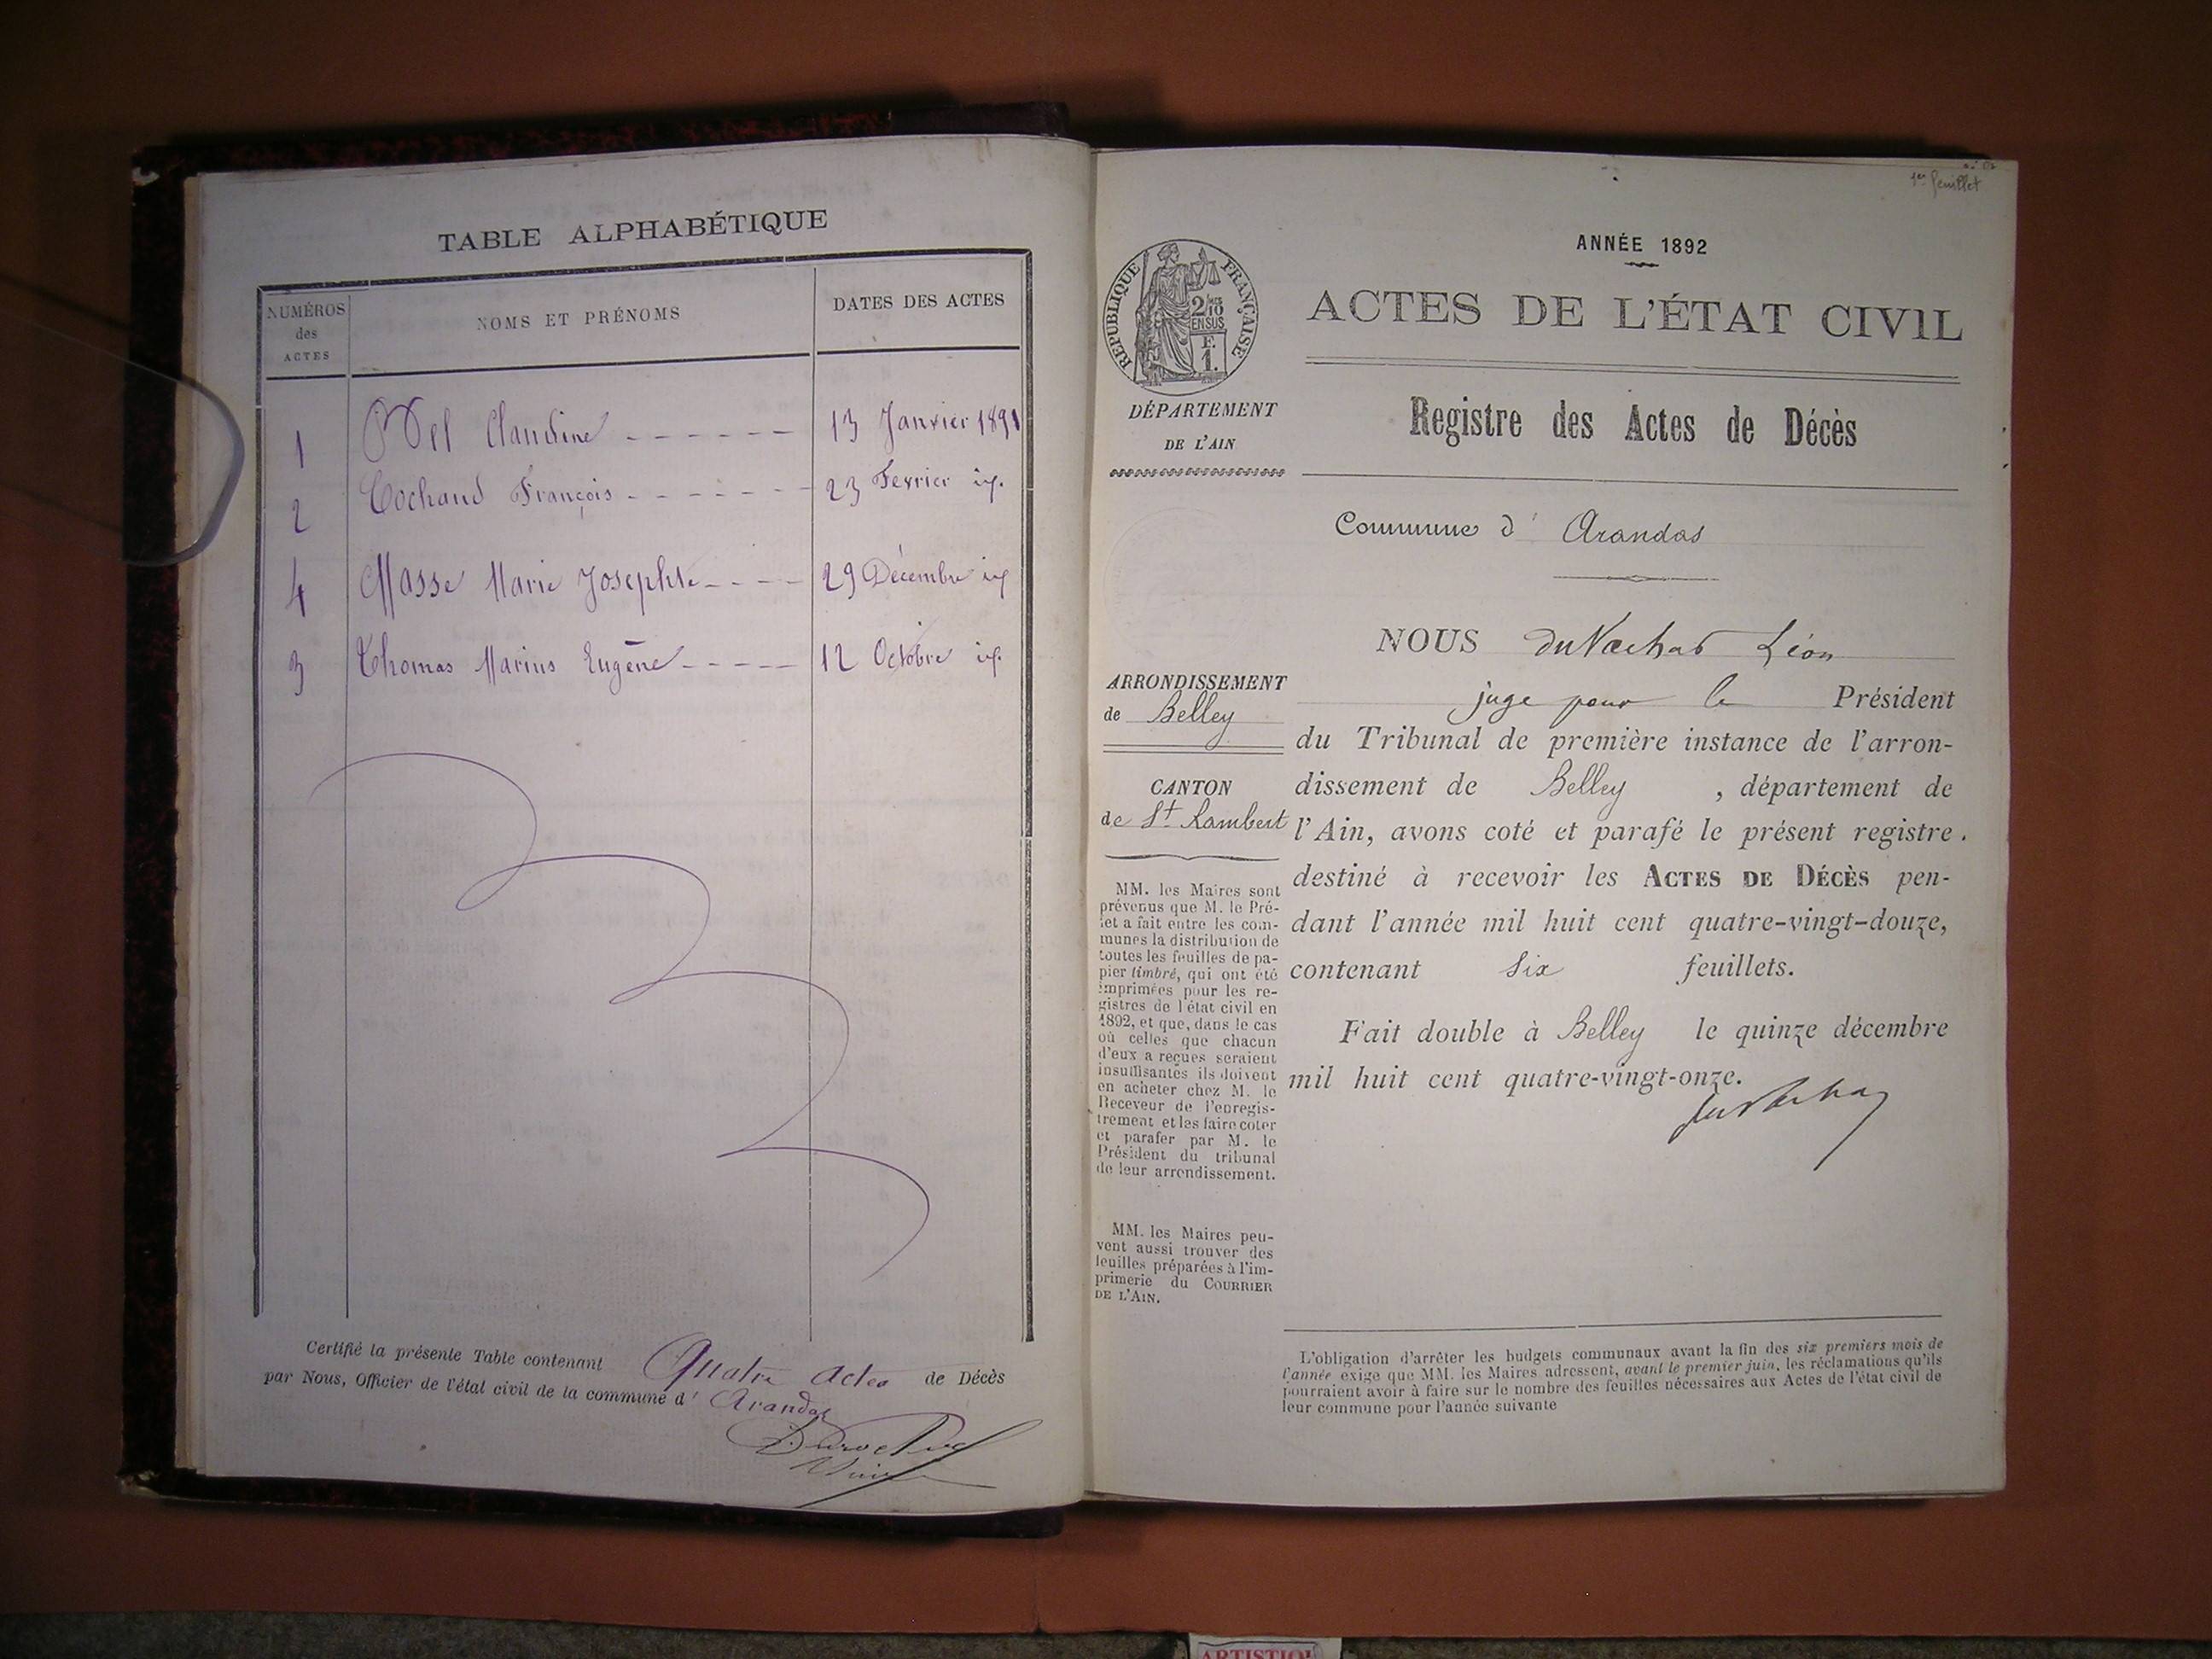 TABLE ALPHABÉTIQUE
NUMÉROS
des
ACTES
NOMS ET PRÉNOMS
DATES DES ACTES
1 Claudine 13 Janvier 1891
2 Cochand François 23 Fevrier id.
4 Masse Marie Josephte 29 Décembre id
3 Thomas Marius Eugène 12 Octobre id.
Certifié la présente Table contenant Quatre Actes de Décès
par Nous, Officier de l'état civil de la commune d' Arandas
1er feuillet
ANNÉE 1892
RÉPUBLIQUE FRANÇAISE
2/10
EN SUS
F.
1.
ACTES DE L'ÉTAT CIVIL
DÉPARTEMENT
DE L'AIN
Registre des Actes de Décès
Commune d' Arandas
NOUS duVachat Léon
juge pour le Président
du Tribunal de première instance de l'arron-
dissement de Belley , département de
l'Ain, avons coté et parafé le présent registre.
destiné à recevoir les ACTES DE DÉCÈS pen-
dant l'année mil huit cent quatre-vingt-douze,
contenant Six feuillets.
Fait double à Belley le quinze décembre
mil huit cent quatre-vingt-onze.
duVachat
ARRONDISSEMENT
de Belley
CANTON
de St. Rambert
MM. les Maires sont
prévenus que M. le Pré-
fet a fait entre les com-
munes la distribution de
toutes les feuilles de pa-
pier timbré, qui ont été
imprimées pour les re-
gistres de l'état civil en
1892, et que, dans le cas
où celles que chacun
d'eux a reçues seraient
insuffisantes ils doivent
en acheter chez M. le
Receveur de l'enregis-
trement et les faire coter
et parafer par M. le
Président du tribunal
de leur arrondissement.
MM. les Maires peu-
vent aussi trouver des
feuilles préparées à l'im-
primerie du COURRIER
DE L'AIN.
L'obligation d'arrêter les budgets communaux avant la fin des six premiers mois de
l'année exige que MM. les Maires adressent, avant le premier juin, les réclamations qu'ils
pourraient avoir à faire sur le nombre des feuilles nécessaires aux Actes de l'état civil de
leur commune pour l'année suivante
ARTISTIQU